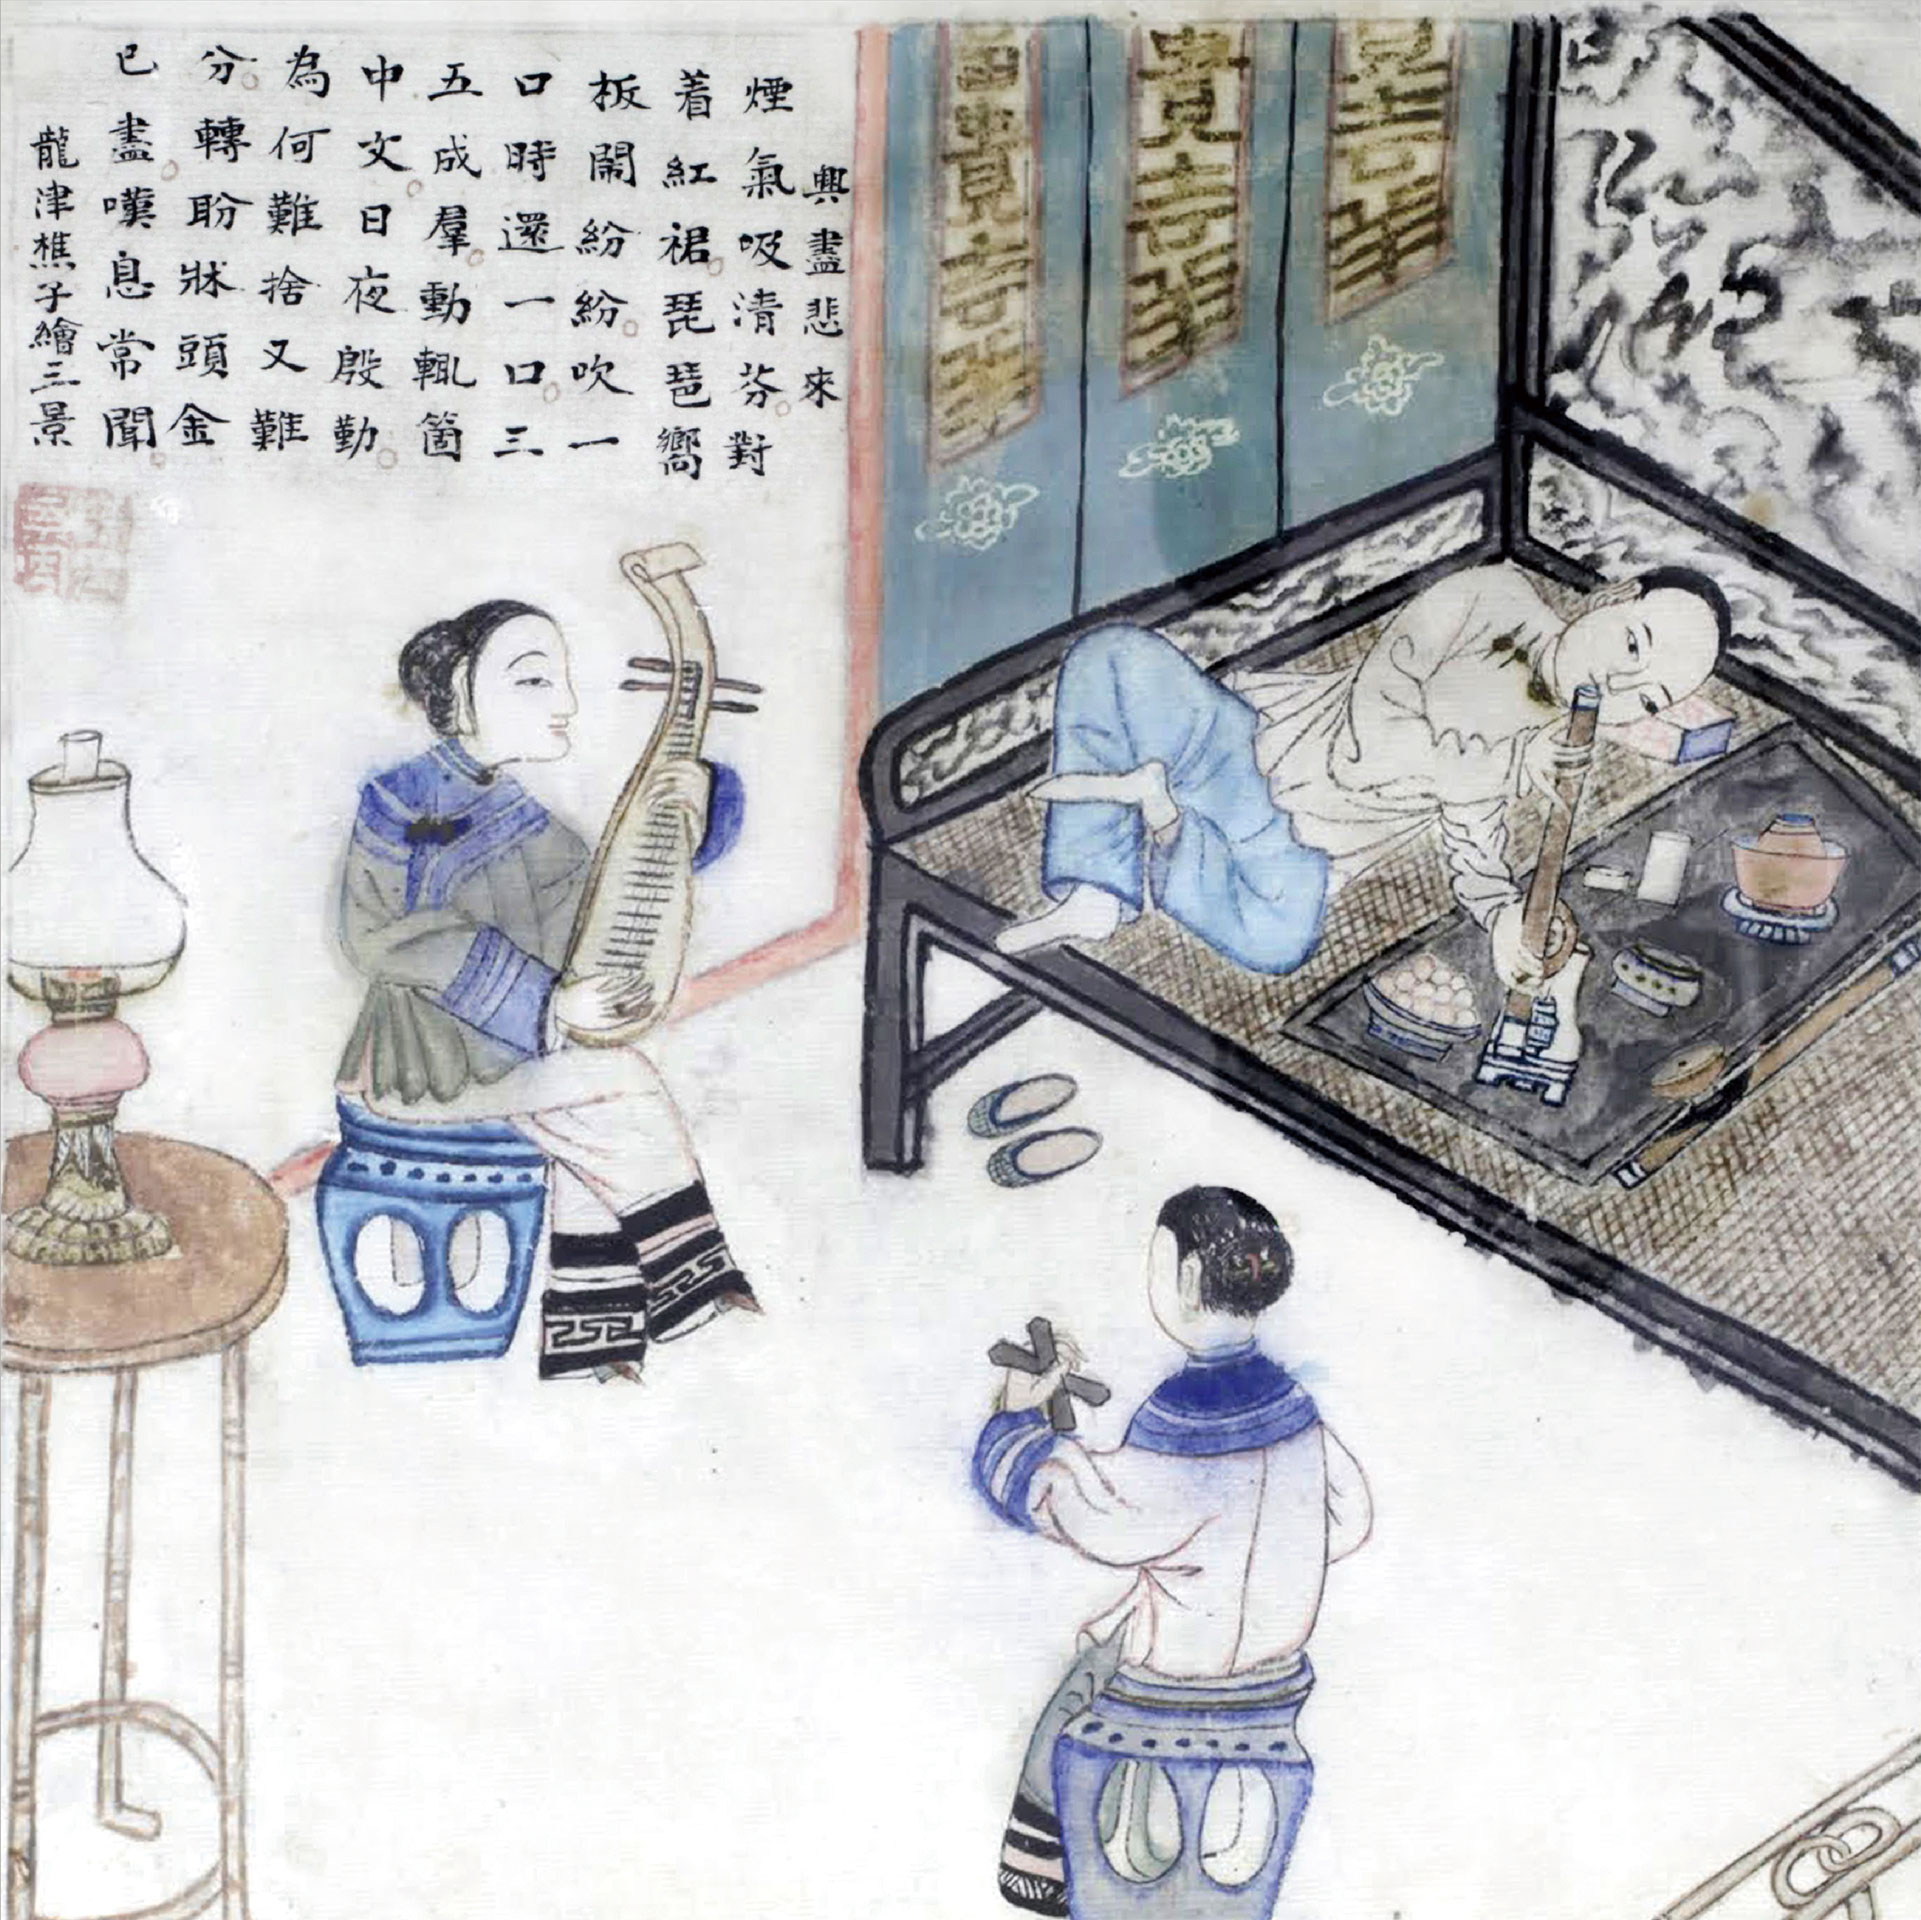 興盡悲來
煙氣吸清芬。對
着紅裙。琵琶嚮
板鬧紛紛。吹一
口時還一口。三
五成羣。動輒箇
中文。日夜殷勤。
為何難捨又難
分。轉盼牀頭金
已盡。嘆息常聞。
龍津樵子繪三景